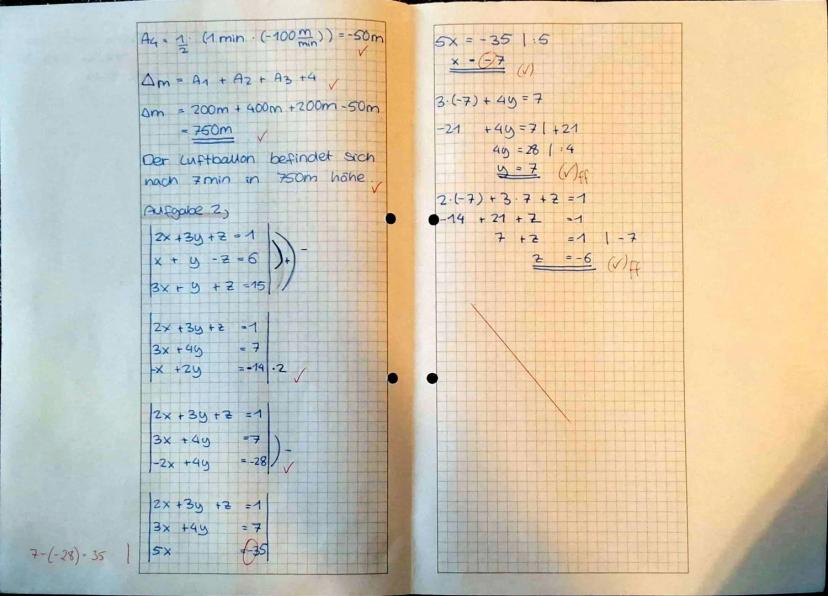 A4 = 1/2 · (1min · (-100 m/min)) = -50m ✓
Δm = A1 + A2 + A3 + 4 ✓
Δm = 200m + 400m + 200m - 50m
= 750m ✓
Der Luftballon befindet sich
nach 7min in 750m höhe. ✓
Aufgabe 2,
|2x + 3y + z = 1|
|x + y - z = 6| + -
|3x + y + z = 15|
|2x + 3y + z = 1|
|3x + 4y = 7|
|-x + 2y = -14| · 2 ✓
|2x + 3y + z = 1|
|3x + 4y = 7|
|-2x + 4y = -28| - ✓
|2x + 3y + z = 1|
|3x + 4y = 7|
7-(-28) = 35 | |5x = -35|
5x = -35 | :5
x = -7 (✓)
3·(-7) + 4y = 7
-21 + 4y = 7 | +21
4y = 28 | :4
y = 7 (✓) ff
2·(-7) + 3·7 + z = 1
-14 + 21 + z = 1
7 + z = 1 | -7
z = -6 (✓) ff